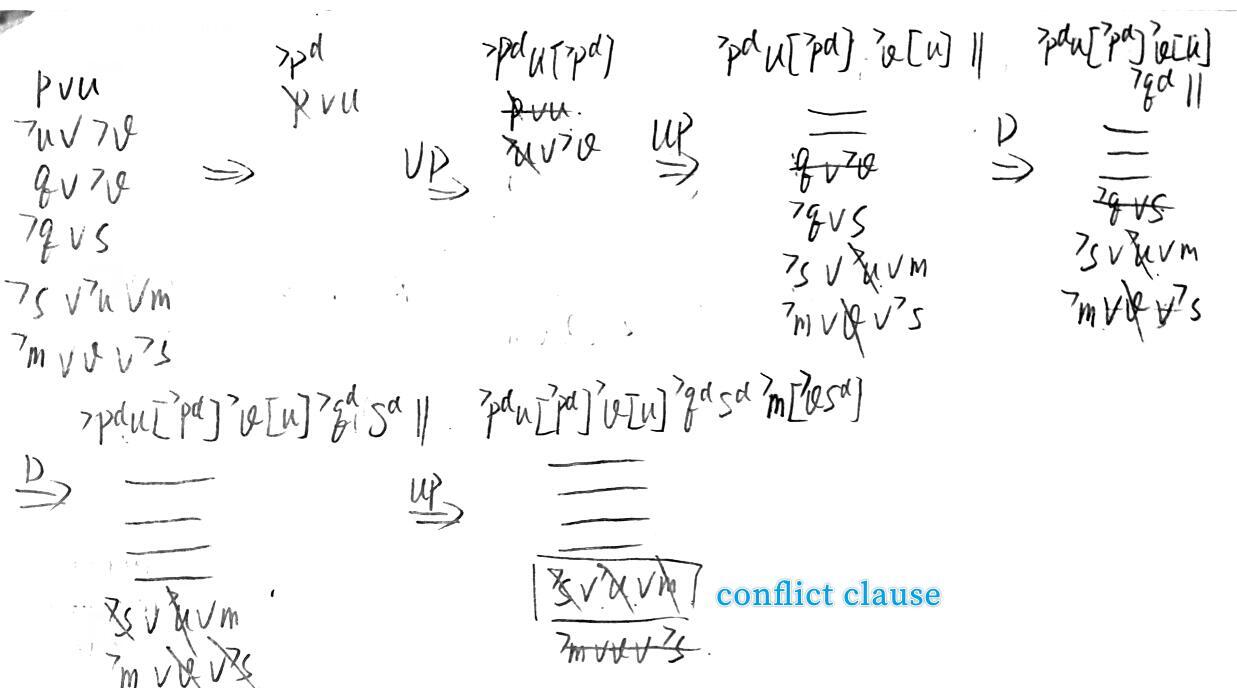 p ∨ u
¬u ∨ ¬v
q ∨ ¬v
¬q ∨ s
¬s ∨ ¬u ∨ m
¬m ∨ v ∨ ¬s
⇒
¬pᵈ
p ∨ u
UP ⇒
¬pᵈ u[¬pᵈ]
p ∨ u
¬u ∨ ¬v
UP ⇒
¬pᵈ u[¬pᵈ] ¬v[u] ||
q ∨ ¬v
¬q ∨ s
¬s ∨ ¬u ∨ m
¬m ∨ v ∨ ¬s
D ⇒
¬pᵈ u[¬pᵈ] ¬v[u]
¬qᵈ ||
¬q ∨ s
¬s ∨ ¬u ∨ m
¬m ∨ v ∨ ¬s
D ⇒
¬pᵈ u[¬pᵈ] ¬v[u] ¬qᵈ sᵈ ||
¬s ∨ ¬u ∨ m
¬m ∨ v ∨ ¬s
UP ⇒
¬pᵈ u[¬pᵈ] ¬v[u] ¬qᵈ sᵈ ¬m[¬v sᵈ]
¬s ∨ ¬u ∨ m
conflict clause
¬m ∨ v ∨ ¬s